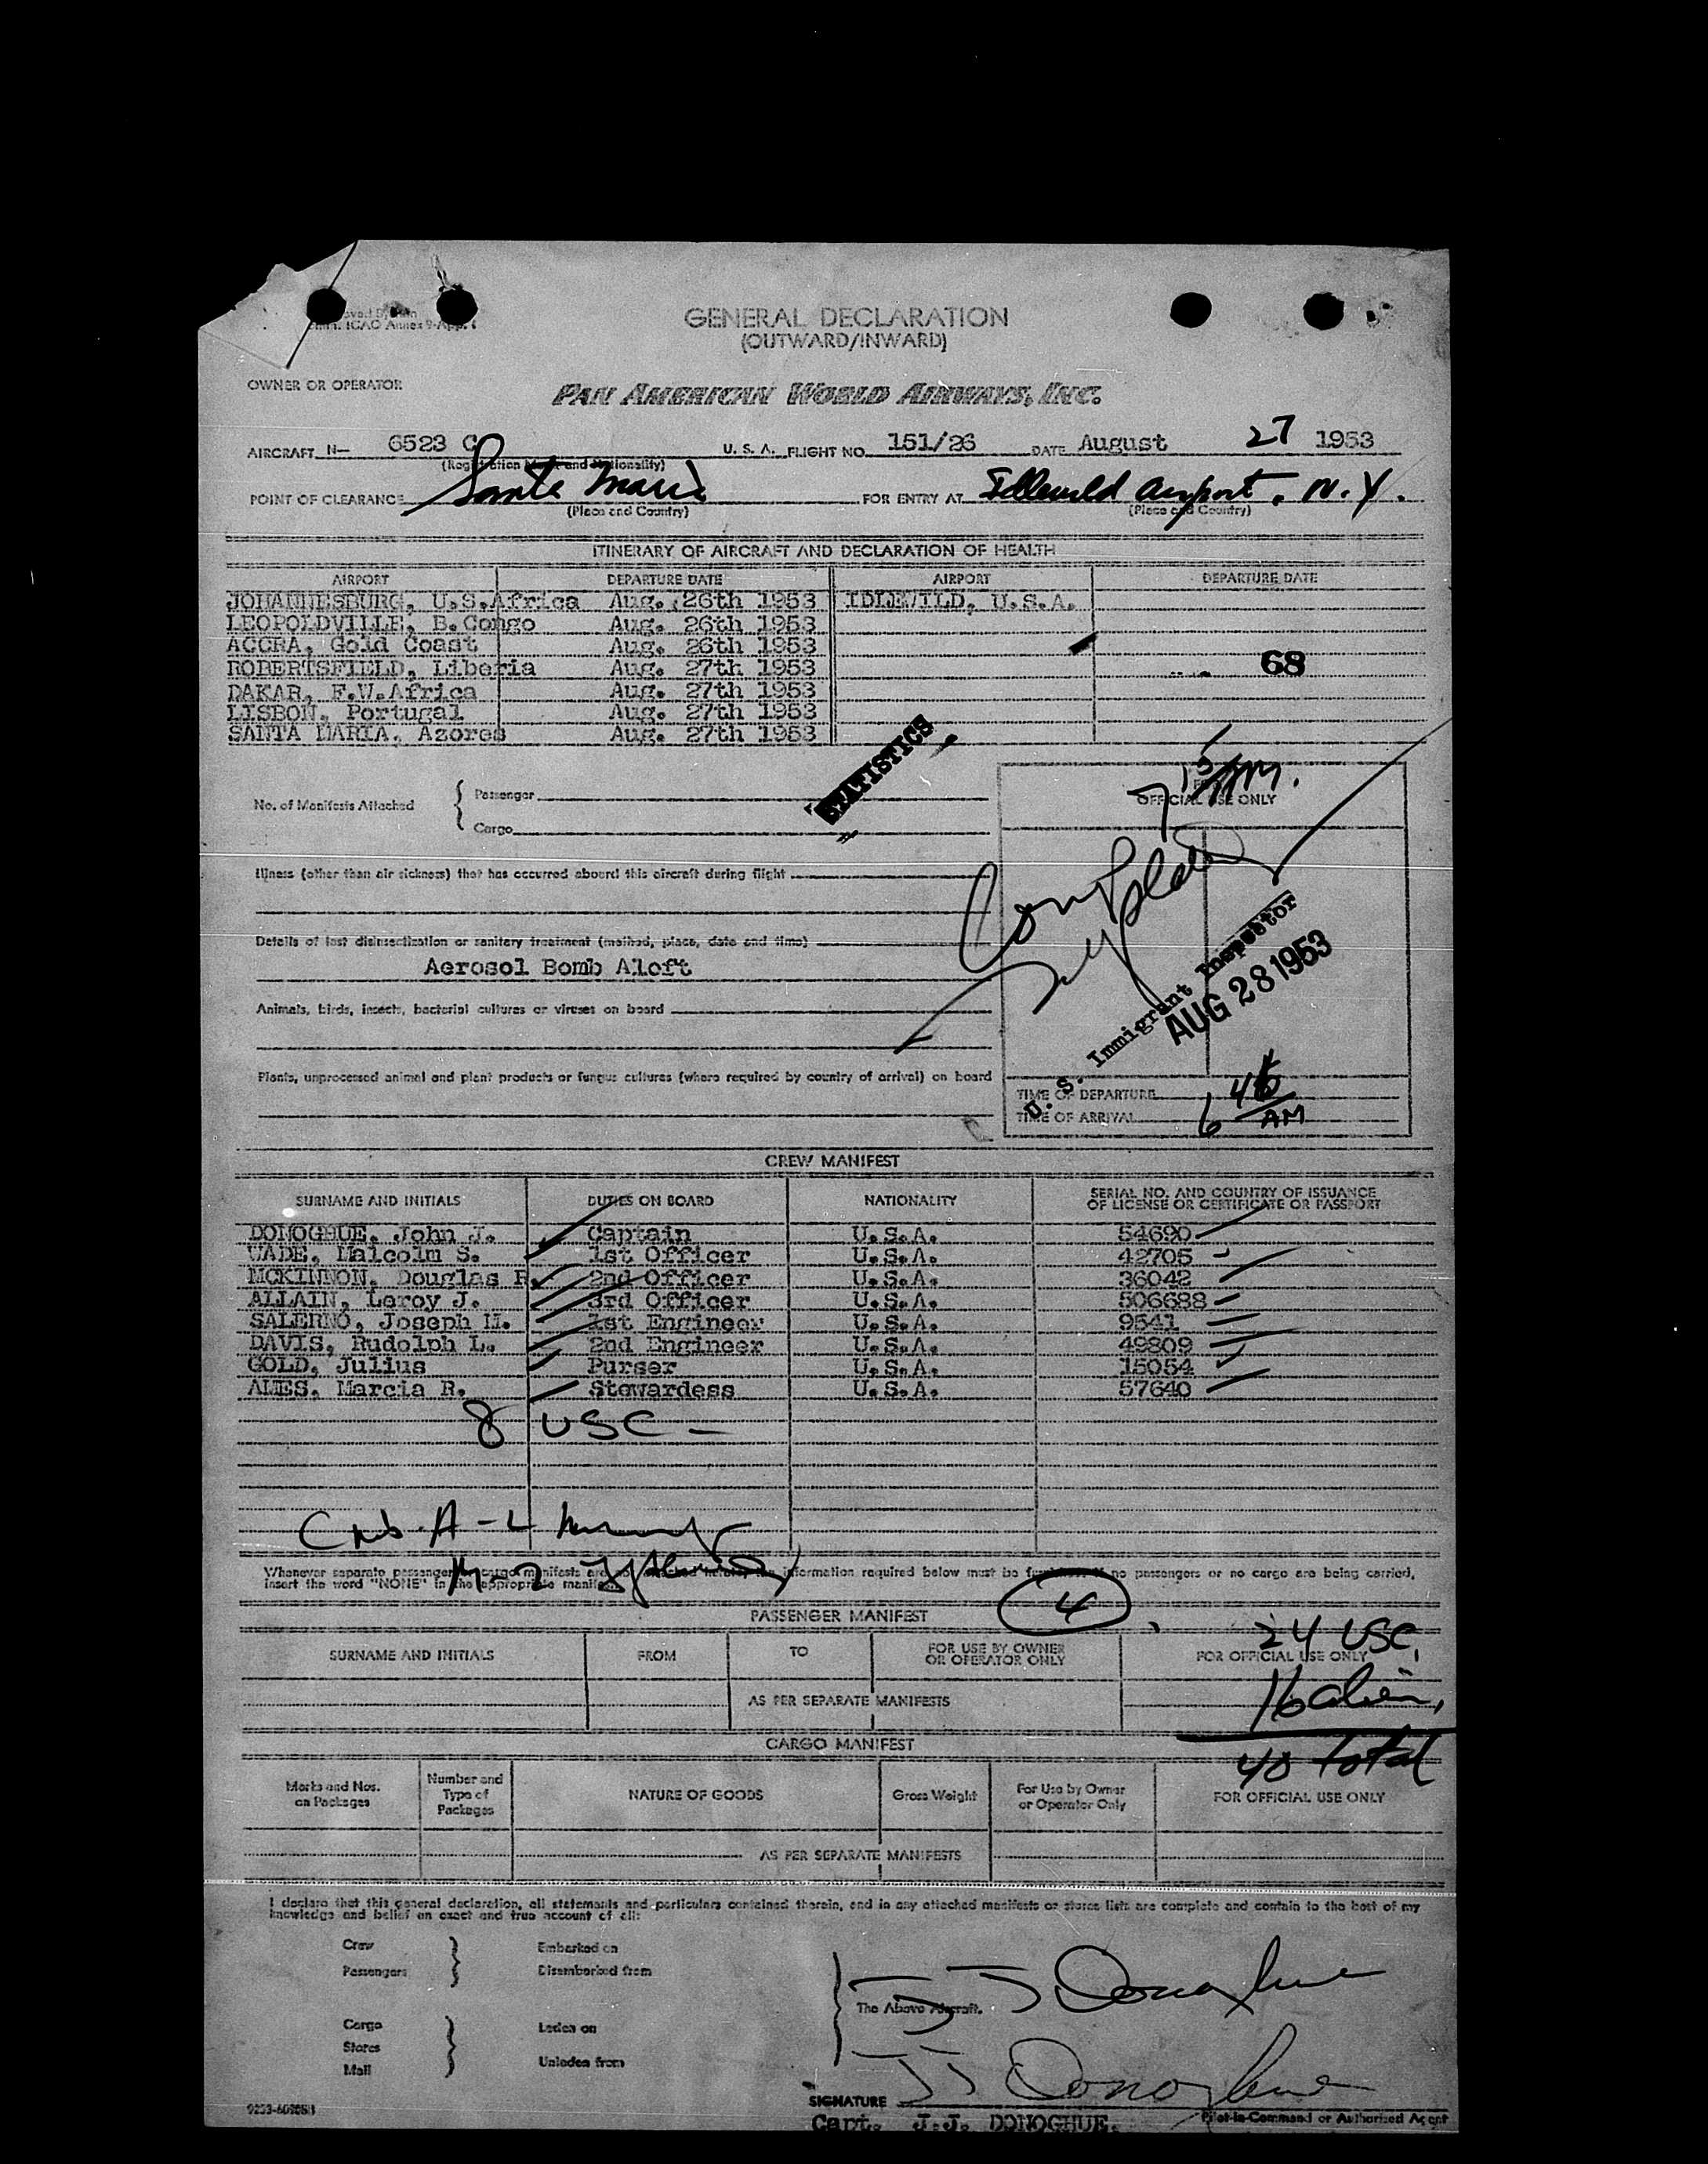 GENERAL DECLARATION
(OUTWARD/INWARD)
ICAO Annex 9-App.
OWNER OR OPERATOR
PAN AMERICAN WORLD AIRWAYS, INC.
AIRCRAFT N- 6523 C U. S. A. FLIGHT NO. 151/26 DATE August 27 1953
(Registration Mark and Nationality)
POINT OF CLEARANCE Santa Maria FOR ENTRY AT Idlewild Airport, N.Y.
(Place and Country) (Place and Country)
ITINERARY OF AIRCRAFT AND DECLARATION OF HEALTH
AIRPORT DEPARTURE DATE AIRPORT DEPARTURE DATE
JOHANNESBURG, U.S.Africa Aug. 26th 1953 IDLEWILD, U.S.A.
LEOPOLDVILLE, B.Congo Aug. 26th 1953
ACCRA, Gold Coast Aug. 26th 1953
ROBERTSFIELD, Liberia Aug. 27th 1953 68
DAKAR, F.W.Africa Aug. 27th 1953
LISBON, Portugal Aug. 27th 1953
SANTA MARIA, Azores Aug. 27th 1953
STATISTICS
7 15 AM.
No. of Manifests Attached { Passenger
Cargo
FOR OFFICIAL USE ONLY
Illness (other than air sickness) that has occurred aboard this aircraft during flight
Completed
Details of last disinsectization or sanitary treatment (method, place, date and time)
Aerosol Bomb Aloft
U. S. Immigrant Inspector
AUG 28 1953
Animals, birds, insects, bacterial cultures or viruses on board
Plants, unprocessed animal and plant products or fungus cultures (where required by country of arrival) on board
TIME OF DEPARTURE
TIME OF ARRIVAL 6 45 AM
CREW MANIFEST
SURNAME AND INITIALS DUTIES ON BOARD NATIONALITY SERIAL NO. AND COUNTRY OF ISSUANCE OF LICENSE OR CERTIFICATE OR PASSPORT
DONOGHUE, John J. Captain U.S.A. 54690
WADE, Malcolm S. 1st Officer U.S.A. 42705
MCKINNON, Douglas R. 2nd Officer U.S.A. 36042
ALLAIN, Leroy J. 3rd Officer U.S.A. 506688
SALERNO, Joseph M. 1st Engineer U.S.A. 9541
DAVIS, Rudolph L. 2nd Engineer U.S.A. 49809
GOLD, Julius Purser U.S.A. 15054
AMES, Marcia R. Stewardess U.S.A. 57640
8 USC -
A - L
M-Z
Whenever separate passenger or cargo manifests are not attached hereto, the information required below must be furnished. If no passengers or no cargo are being carried,
insert the word "NONE" in the appropriate manifest.
4
PASSENGER MANIFEST
24 USC,
SURNAME AND INITIALS FROM TO FOR USE BY OWNER OR OPERATOR ONLY FOR OFFICIAL USE ONLY
16 alien,
AS PER SEPARATE MANIFESTS
CARGO MANIFEST
40 total
Marks and Nos. on Packages Number and Type of Packages NATURE OF GOODS Gross Weight For Use by Owner or Operator Only FOR OFFICIAL USE ONLY
AS PER SEPARATE MANIFESTS
I declare that this general declaration, all statements and particulars contained therein, and in any attached manifests or stores lists are complete and contain to the best of my
knowledge and belief an exact and true account of all:
Crew } Embarked on
Passengers } Disembarked from
J J Donoghue
The Above Aircraft.
Cargo } Laden on
Stores
Mail } Unladen from
SIGNATURE J J Donoghue
Pilot-in-Command or Authorized Agent
Capt. J.J. DONOGHUE.